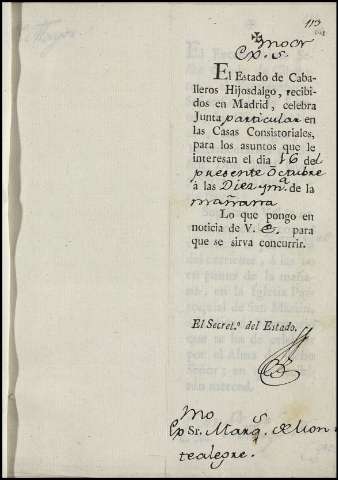 113
✠
Exmo Sor.
El Estado de Caba-
lleros Hijosdalgo, recibi-
dos en Madrid, celebra
Junta particular en
las Casas Consistoriales,
para los asuntos que le
interesan el dia 16 del
presente Octubre
á las Diez y ma. de la
mañana
Lo que pongo en
noticia de V. E. para
que se sirva concurrir.
El Secret.º del Estado.
Exmo Sr. Marqs. de Mon-
tealegre.